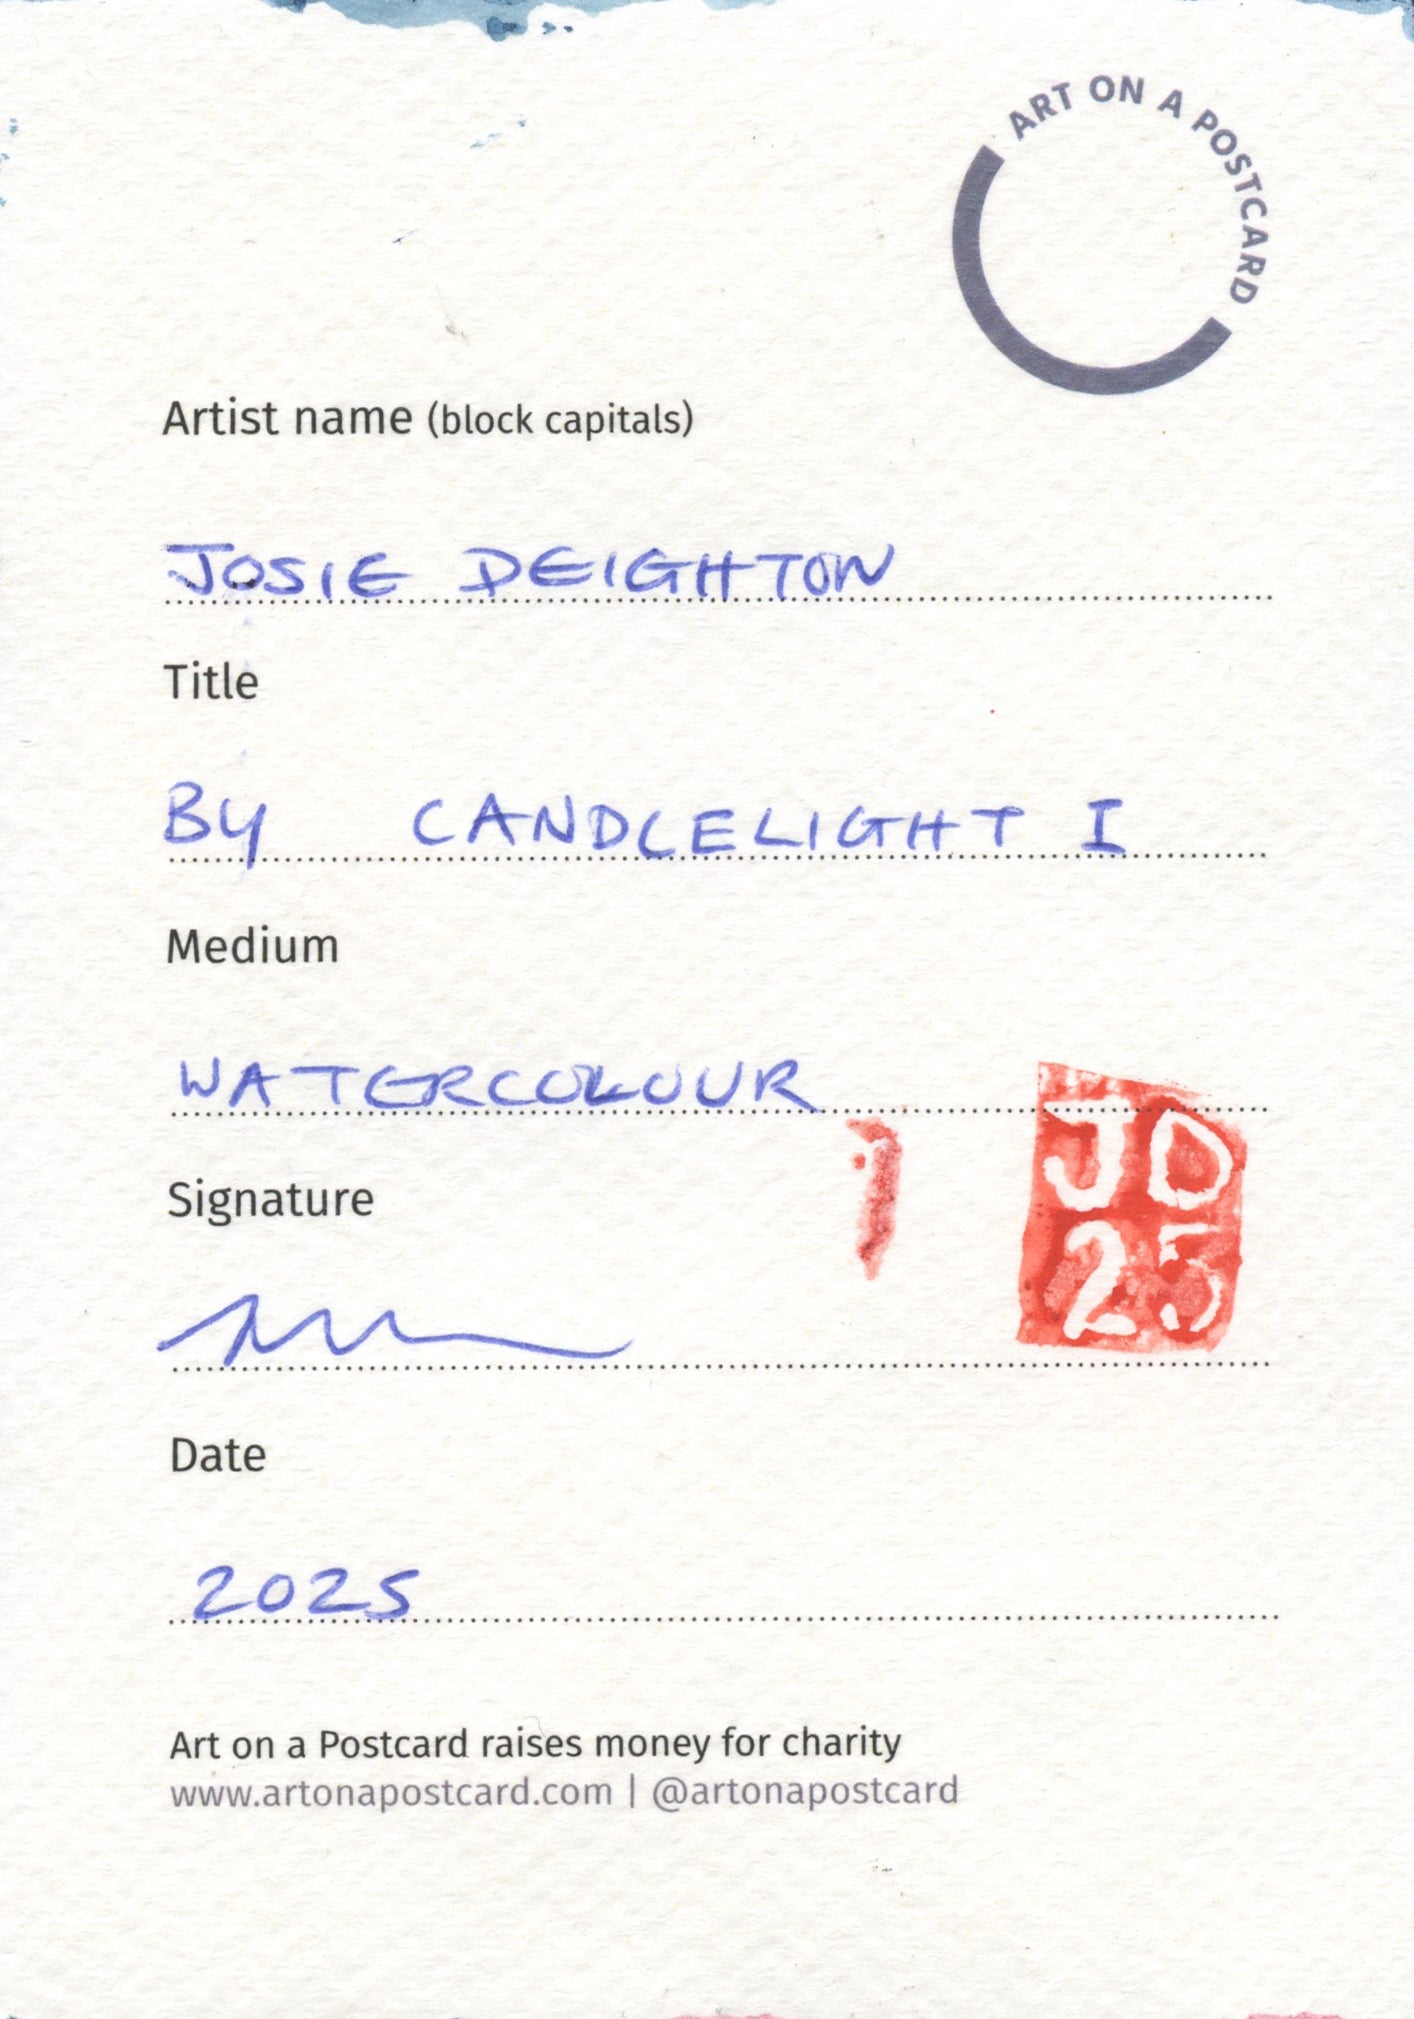 ART ON A POSTCARD
Artist name (block capitals)
JOSIE DEIGHTON
Title
BY CANDLELIGHT I
Medium
WATERCOLOUR
JD
Signature
25
Date
2025
Art on a Postcard raises money for charity
www.artonapostcard.com | @artonapostcard